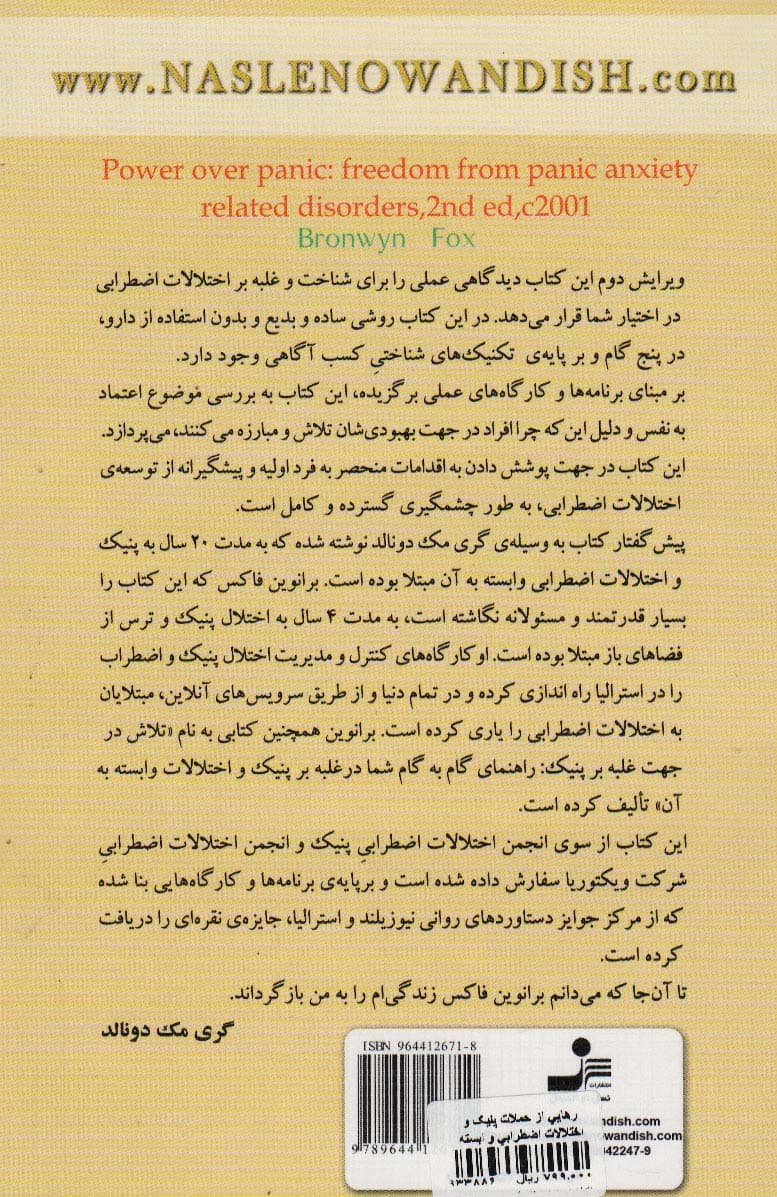 www.NASLENOWANDISH.com
Power over panic: freedom from panic anxiety
related disorders,2nd ed,c2001
Bronwyn Fox
ویرایش دوم این کتاب دیدگاهی عملی را برای شناخت و غلبه بر اختلالات اضطرابی
در اختیار شما قرار می‌دهد. در این کتاب روشی ساده و بدیع و بدون استفاده از دارو،
در پنج گام و بر پایه‌ی تکنیک‌های شناختیِ کسب آگاهی وجود دارد.
بر مبنای برنامه‌ها و کارگاه‌های عملی برگزیده، این کتاب به بررسی موضوع اعتماد
به نفس و دلیل این‌که چرا افراد در جهت بهبودی‌شان تلاش و مبارزه می‌کنند، می‌پردازد.
این کتاب در جهت پوشش دادن به اقدامات منحصر به فرد اولیه و پیشگیرانه از توسعه‌ی
اختلالات اضطرابی، به طور چشمگیری گسترده و کامل است.
پیش‌گفتار کتاب به وسیله‌ی گری مک دونالد نوشته شده که به مدت ۲۰ سال به پنیک
و اختلالات اضطرابی وابسته به آن مبتلا بوده است. برانوین فاکس که این کتاب را
بسیار قدرتمند و مسئولانه نگاشته است، به مدت ۴ سال به اختلال پنیک و ترس از
فضاهای باز مبتلا بوده است. او کارگاه‌های کنترل و مدیریت اختلال پنیک و اضطراب
را در استرالیا راه اندازی کرده و در تمام دنیا و از طریق سرویس‌های آنلاین، مبتلایان
به اختلالات اضطرابی را یاری کرده است. برانوین همچنین کتابی به نام «تلاش در
جهت غلبه بر پنیک: راهنمای گام به گام شما درغلبه بر پنیک و اختلالات وابسته به
آن» تألیف کرده است.
این کتاب از سوی انجمن اختلالات اضطرابیِ پنیک و انجمن اختلالات اضطرابیِ
شرکت ویکتوریا سفارش داده شده است و برپایه‌ی برنامه‌ها و کارگاه‌هایی بنا شده
که از مرکز جوایز دستاوردهای روانی نیوزیلند و استرالیا، جایزه‌ی نقره‌ای را دریافت
کرده است.
تا آن‌جا که می‌دانم برانوین فاکس زندگی‌ام را به من بازگرداند.
گری مک دونالد
ISBN 964412671-8
9 789644 1
انتشارات
ndish.com
owandish.com
042247-9
رهایی از حملات پنیک و
اختلالات اضطرابی وابسته
۹۳۳۸۸۶ ۷۹۹.۰۰۰ ریال